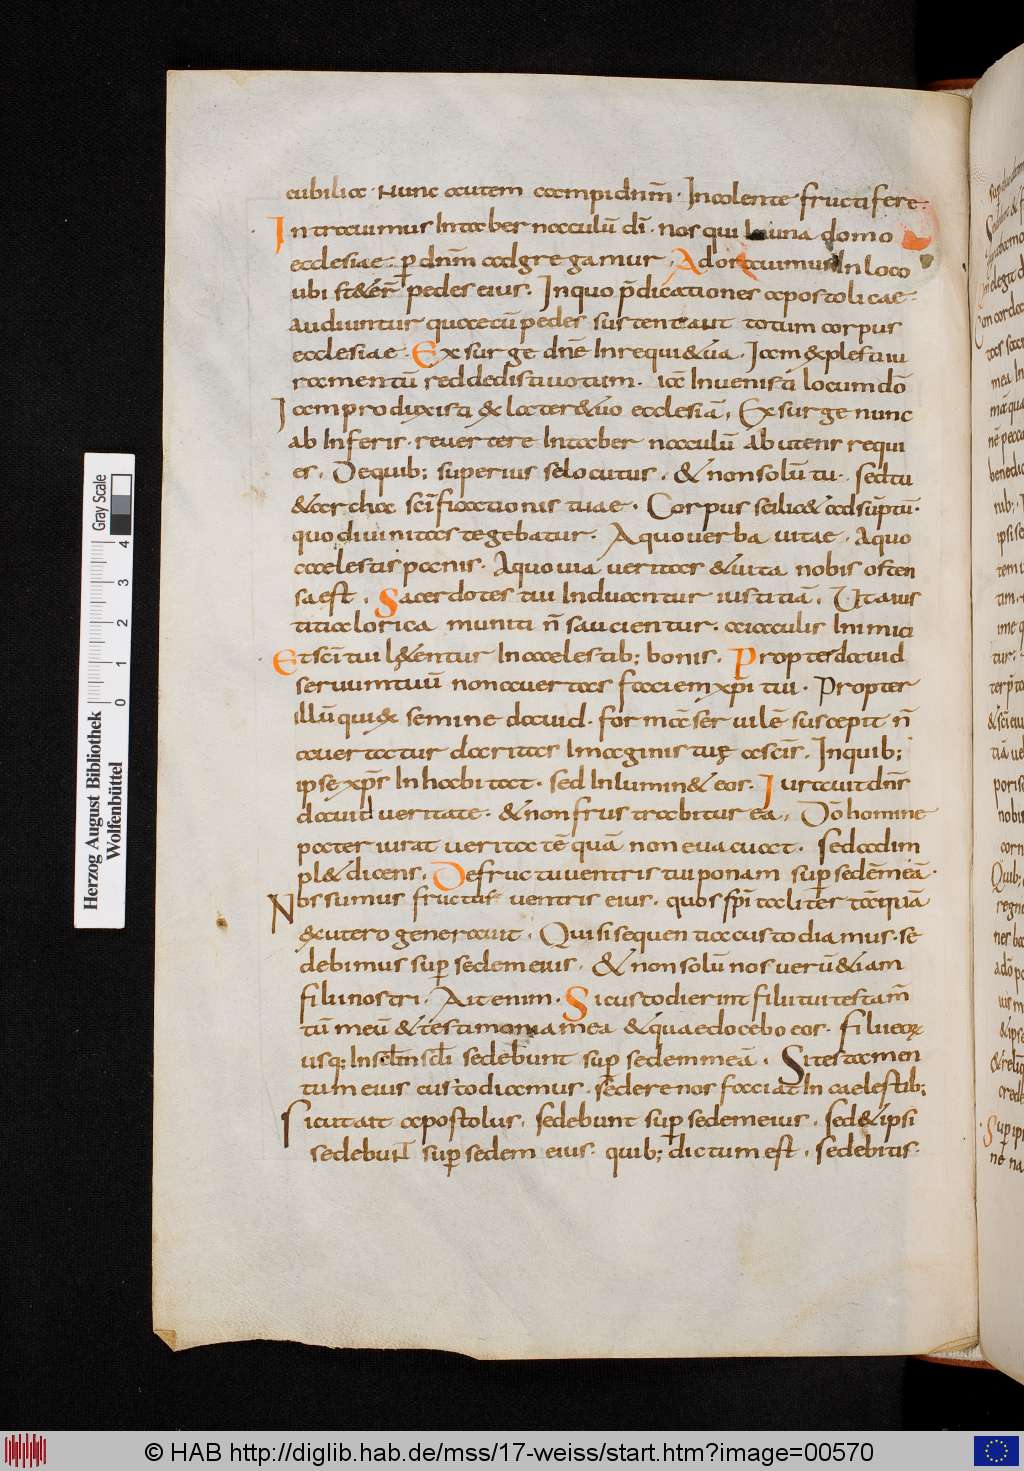 cubilia. Nunc autem campidnm̄. In volente fructifere.
Introivimus In taber naculū dī. nos qui In una domo
ecclesiae. p̱ dnm̄ adgregamur. Adoravimus In loco
ubi st&er̄ pedes eius. In quo p̄dicationes apostolicae.
audiuntur quae cū pedes sustentant totum corpus
ecclesiae. Exsurge dnē In requi& ua. Iam &plesti iu
ramentū reddedisti uotum. iā Invenisti locum dō
Iam produxisti & lacter& uo ecclesiā, Exsurge nunc
ab Inferis. revertere In taber naculū Ab utens requi
es. De quib; superius se locutus. & non solū tu. sed tu
& archa sc̄ificationis tuae. Corpus scilic& adsūptū.
quo divinitas tegebatur. A quo verba vitae. A quo
caelestis panis. A quo via veritas & vita nobis osten
sa est. Sacerdotes tui Induantur iustitiā. Ut a ius
titia lorica muniti n̄ saucientur. a iaculis Inimici
Et sc̄i tui l&entur In caelestib; bonis. Propter david
servum tuū non avertas faciem xp̄i tui. Propter
illū qui & semine david. formā servilē suscepit n̄
avertatur claritas Imaginis tuę a sc̄is. In quib;
ipse xp̄s In habitat. sed Inlumin& eos. Iuravit dn̄s
david veritate. & non frustrabitur eā, Dō homine
pater iurat veritatē quā non evacuat. sed adim
pl& dicens. De fructu ventris tui ponam sup̱ sedē meā.
Nos sumus fructus ventris eius. quos sp̄i taliter tāquā
&utero generavit. Qui si sequentia custodiamus. se
debimus sup̱ sedem eius. & non solū nos verū &iam
filii nostri. Ait enim. Si custodierint filii tui testam̄
tū meū & testimonia mea & quae docebo eos. filii eoꝝ
usq; In sc̄lm sc̄li sedebunt sup̱ sedem meā. Si testamen
tum eius custodiamus. sedere nos faciat In caelestib;
Sicut ait apostolus. sedebunt sup̱ sedem eius. sed & ipsi
sedebunt sup̱ sedem eius. quib; dictum est. sedebitis.
Herzog August Bibliothek
Wolfenbüttel
0 1 2 3 4
Gray Scale
© HAB http://diglib.hab.de/mss/17-weiss/start.htm?image=00570